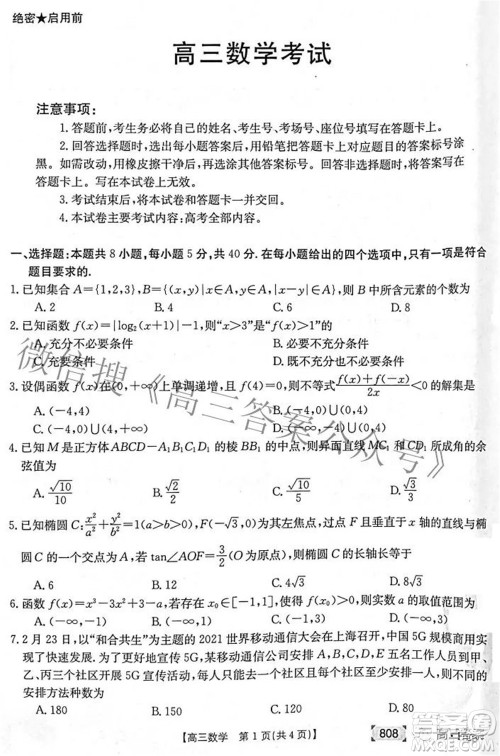 绝密★启用前
高三数学考试
注意事项:
1.答题前,考生务必将自己的姓名、考生号、考场号、座位号填写在答题卡上。
2.回答选择题时,选出每小题答案后,用铅笔把答题卡上对应题目的答案标号涂黑。如需改动,用橡皮擦干净后,再选涂其他答案标号。回答非选择题时,将答案写在答题卡上。写在本试卷上无效。
3.考试结束后,将本试卷和答题卡一并交回。
4.本试卷主要考试内容:高考全部内容。
一、选择题:本题共8小题,每小题5分,共40分.在每小题给出的四个选项中,只有一项是符合题目要求的.
1.已知集合A={1,2,3},B={x|-x∈A},则A∪B中所含元素的个数为
A.2 B.4 C.6 D.8
2.已知函数f(x)=|log₂(x+1)|-1,则“x>3”是“f(x)>1”的
A.充分不必要条件 B.既不充分也不必要条件
C.充要条件 D.必要不充分条件
3.设偶函数f(x)在(0,+∞)上单调递增,且f(4)=0,则不等式(f(x)+f(-x))/2x<0的解集是
A.(-4,4) B.(-4,0)∪(4,+∞)
C.(-4,0)∪(0,4) D.(-∞,-4)∪(0,4)
4.已知M是正方体ABCD-A₁B₁C₁D₁的棱BB₁的中点,则异面直线MC₁与D₁C所成角的余弦值为
A.√10/10 B.√2/2 C.√10/5 D.√2/4
5.已知椭圆C:x²/a²+y²/b²=1(a>b>0),F(-√3,0)为其左焦点,过F点且垂直于x轴的直线与椭圆C的一个交点为A,若tan∠AOF=3/2(O为原点),则椭圆C的长轴长等于
A.6 B.12 C.4√3 D.8√3
6.函数f(x)=x³-3x²+3-a,若存在x₀∈[-1,1],使得f(x₀)>0,则实数a的取值范围为
A.(-∞,-1) B.(-∞,1) C.(-1,3) D.(-∞,3)
7.2月23日,以“和合共生”为主题的2021世界移动通信大会在上海召开,中国5G规模商用实现了快速发展。为了更好地宣传5G,某移动通信公司安排
五名工作人员到甲、乙、丙三个社区开展5G宣传活动,每人只能去一个社区且每个社区至少安排一人,则不同的安排方法种数为
A.180 B.150 C.120 D.80
【高三数学 第1页(共4页)】
808
微信搜《高三答案公众号》